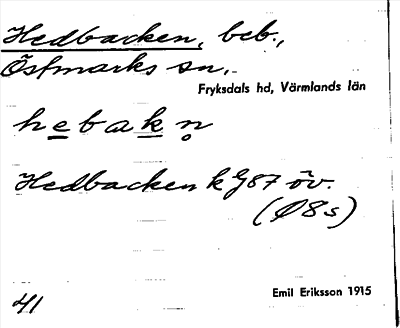 Hedbacken, beb.,
Östmarks sn.
Fryksdals hd, Värmlands län
hebakn̥
Hedbacken kg87 öv.
(Ø8s)
41
Emil Eriksson 1915